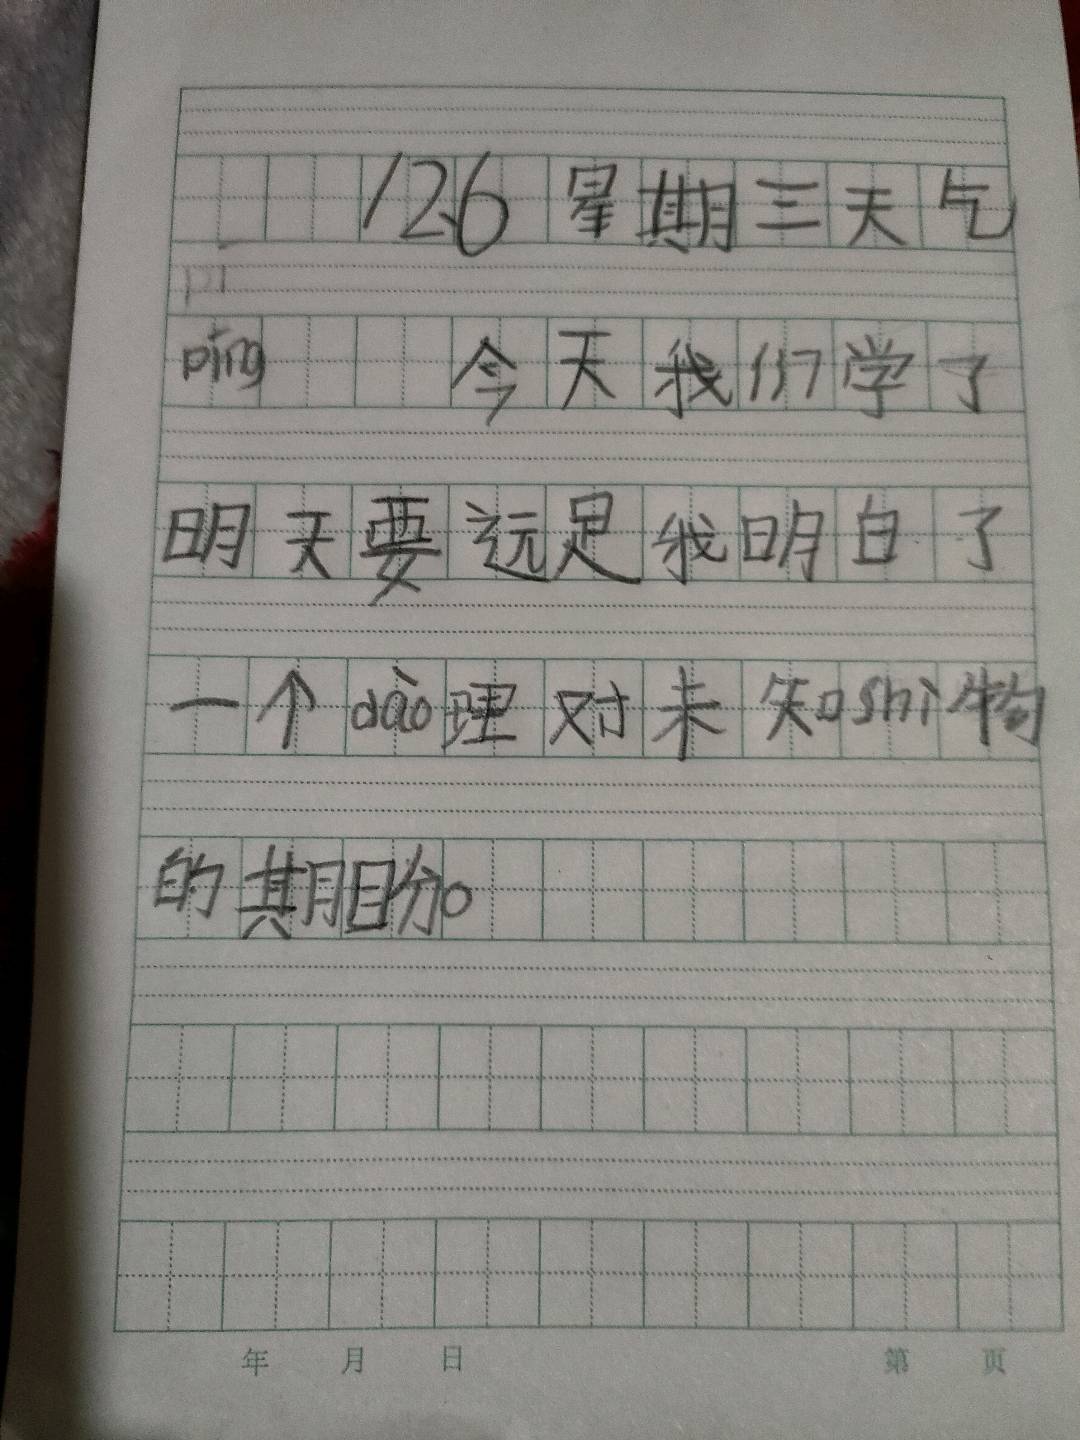 12.6 星期三天气
píng 今天我们学了
明天要远足我明白了
一个dào理对未知shì物
的期盼。
年 月 日 第 页